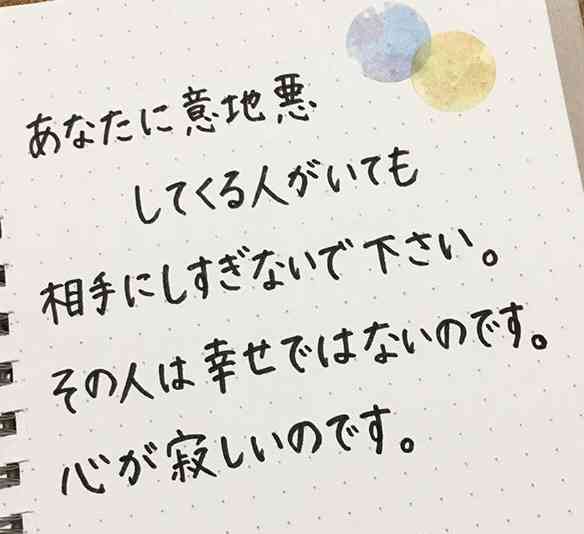 あなたに意地悪
してくる人がいても
相手にしすぎないで下さい。
その人は幸せではないのです。
心が寂しいのです。